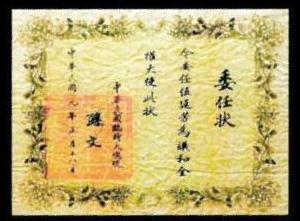 委任状
今委任伍廷芳為議和全
權大使此狀
中華民國臨時大總統
孫文
中華民國元年正月十八日